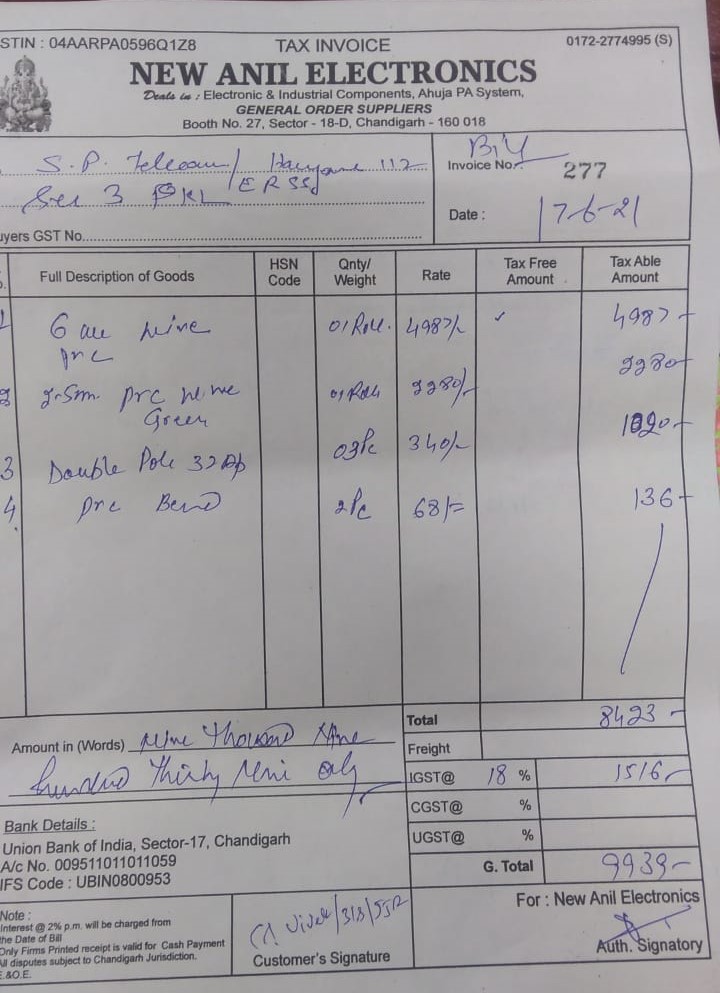 STIN : 04AARPA0596Q1Z8 TAX INVOICE 0172-2774995 (S)
NEW ANIL ELECTRONICS
Deals in : Electronic & Industrial Components, Ahuja PA System,
GENERAL ORDER SUPPLIERS
Booth No. 27, Sector - 18-D, Chandigarh - 160 018
S.P. Telecom/ Haryana 112
ERSS
Sec 3 PKL
Invoice No. 277
Date : 17-6-21
uyers GST No.
Full Description of Goods HSN Code Qnty/ Weight Rate Tax Free Amount Tax Able Amount
1 6 wire 01 Roll. 4987/- 4987-
pvc
2 2.5m pvc wire 01 Roll 2280/- 2280-
Green
3 Double Pole 32 Ap 03Pc 340/- 1020-
4 pvc Bend 2Pc 68/= 136-
Total 8423-
Amount in (Words) Nine Thousand Nine
hundred Thirty Nine only
Freight
IGST@ 18 % 1516-
CGST@ %
UGST@ %
G. Total 9939-
Bank Details :
Union Bank of India, Sector-17, Chandigarh
A/c No. 009511011011059
IFS Code : UBIN0800953
For : New Anil Electronics
Note :
Interest @ 2% p.m. will be charged from
the Date of Bill
Only Firms Printed receipt is valid for Cash Payment
All disputes subject to Chandigarh Jurisdiction.
E.&O.E.
Customer's Signature
Auth. Signatory